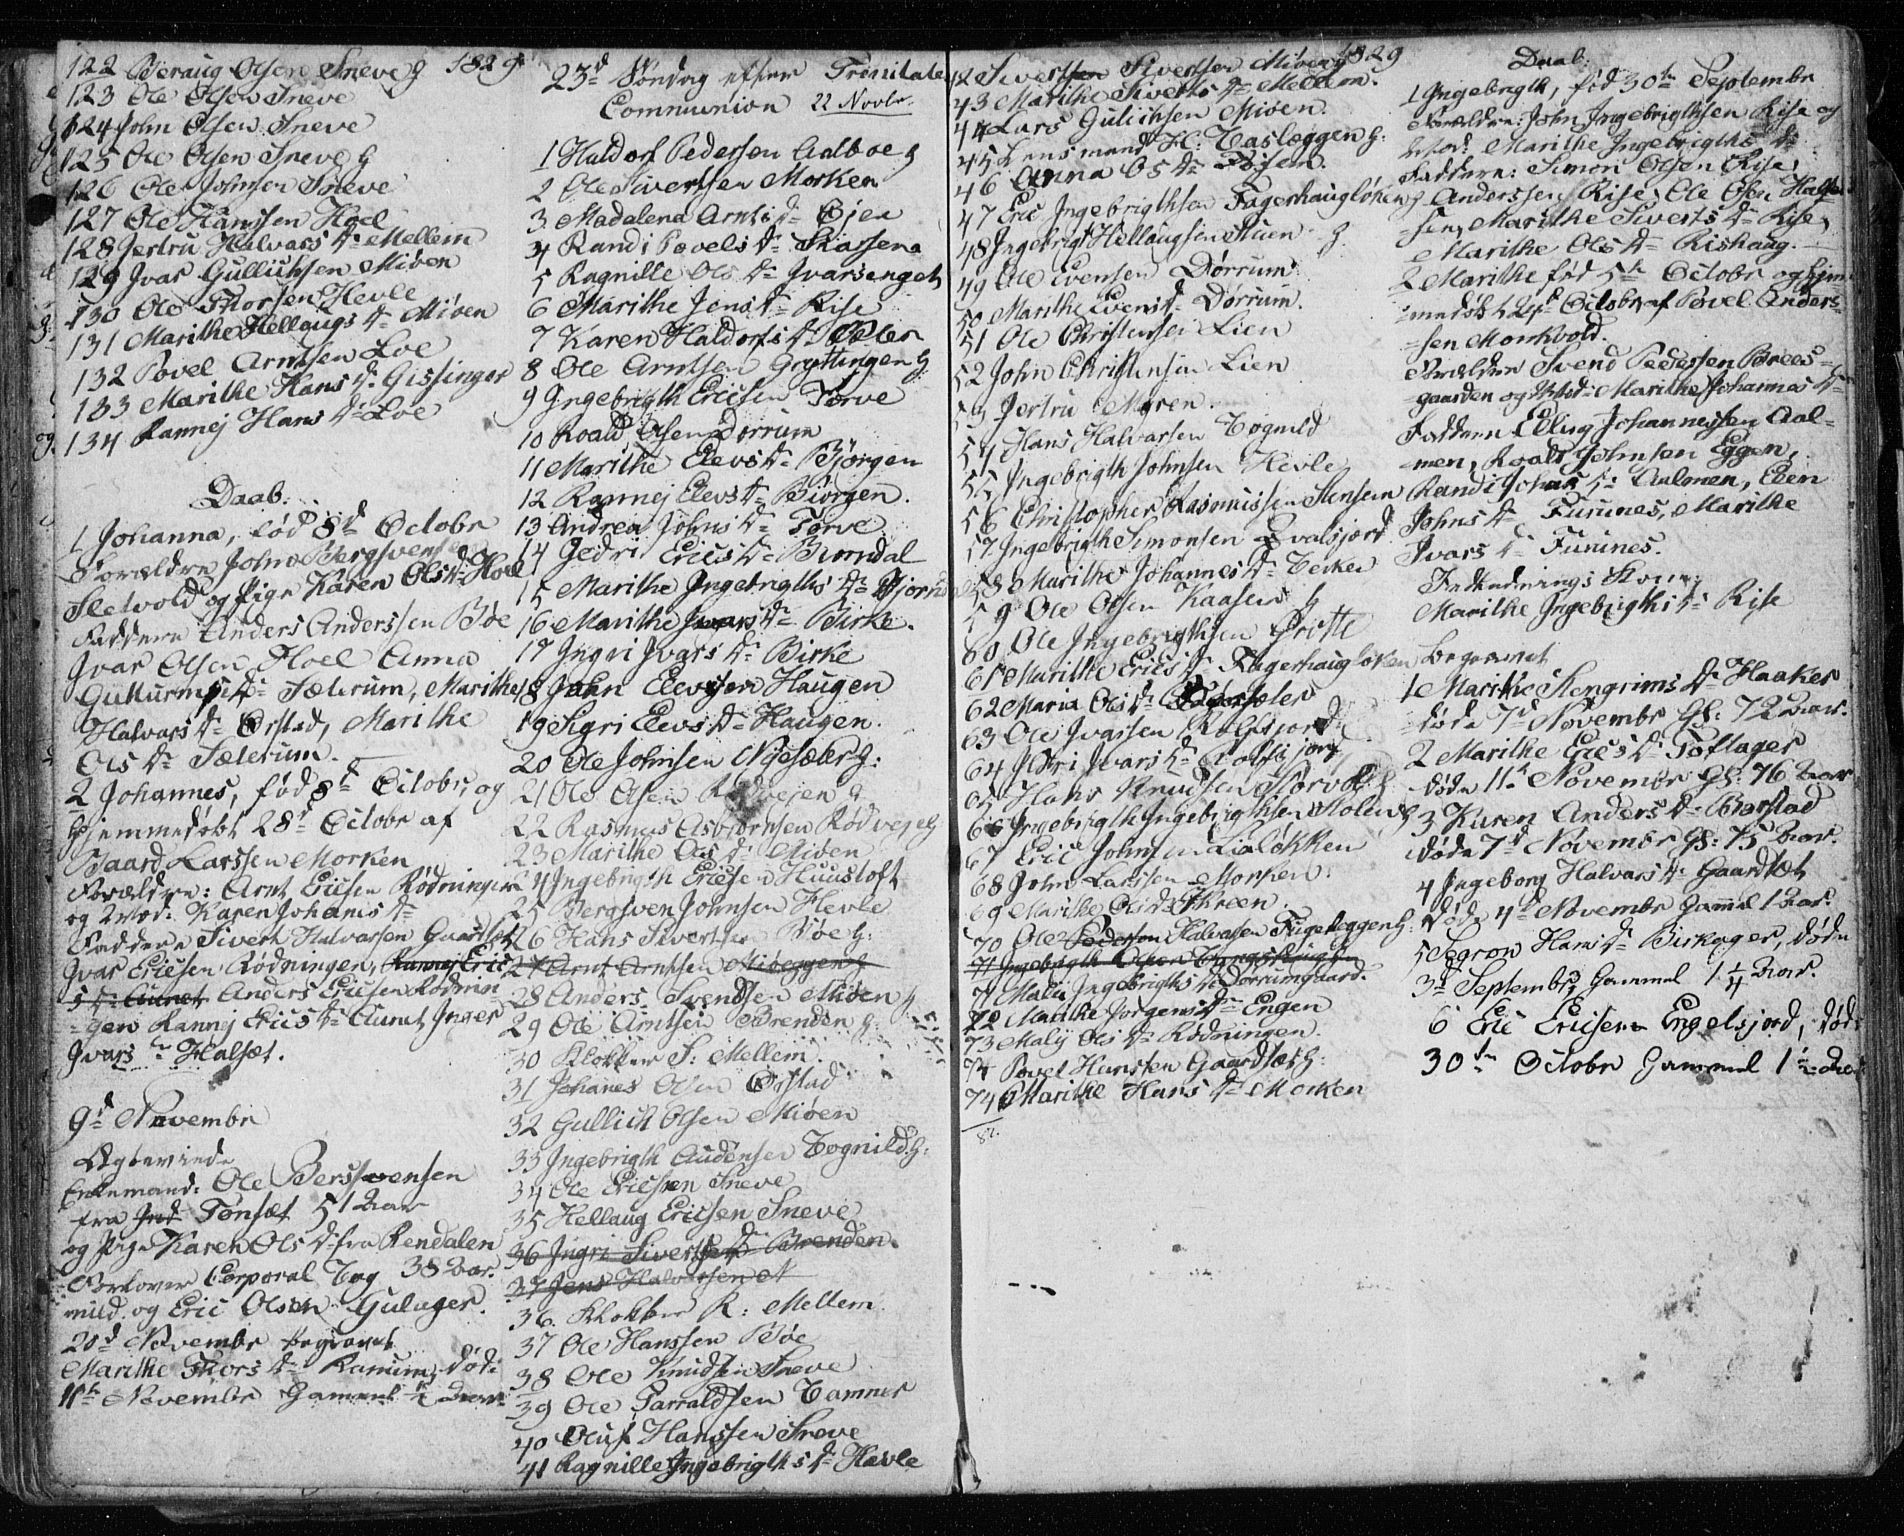 122 Beraug Olsen Sneve g 1829
123 Ole Olsen Sneve
124 John Olsen Sneve
125 Ole Olsen Sneve g
126 Ole Johnsen Sneve
127 Ole Hanssen Hoel
128 Jertru Halvars Dr Mellem
129 Ivar Gullichsen Miöen
130 Ole Thorsen Hevle
131 Marithe Hellaugs Dr Miöen
132 Povel Arntsen Loe
133 Marithe Hans Dr Gissinger
134 Rannej Hans Dr Loe
Daab:
1 Johanna, född 8d Octobr
Forældre John Bergsvensen
Sletvold og Pige Karen Ols Dr Hoel
Faddere Anders Anderssen Böe
Ivar Olsen Hoel Anna
Sæterum, Marithe
Halvars Dr Örstad, Marithe
Ols Dr Sæterum.
2 Johannes, född 8d Octobr, og
hjemmedöbt 28d Octobr af
Baard Larssen Morken
Forældre: Arnt Ericsen Rödningen
og Mod: Karen Johanis Dr
Faddere Sivert Halvarsen Gaardset
Ivar Ericsen Rödningen,
Anders Ericsen Rödnin
=gen Rannej Erics Dr Aunet Inger
Ivars Dr Halset.
9d Novembr
Ægtevïede
Enkemand: Ole Bersvensen
fra Tönset 51 Aar
og Pige Karen Ols Dr fra Rendalen
Forlover Corporal Tog 38 Aar.
nild og Eric Olsen Gulager.
20d Novembr begravet
Marithe Thors Dr Ranum, döde
11te Novembr Gammel ½ Aar
23d Söndag efter Trinitatis
Communion 22 Novbr.
1 Haldorf Pedersen Aalboe g
2 Ole Sivertsen Morken
3 Madalena Arnts Dr Öien
4 Randi Povels Dr Skassena
5 Ragnille Ols Dr Ivarsenget
6 Marithe Jens Dr Rise
7 Karen Haldorfs Dr
8 Ole Arntsen Gryttingen g
9 Ingebrigth Ericsen Torve
10 Roald Olsen Dörrum
11 Marithe Elevs Dr Björgen
12 Rannej Elevs Dr Biörgen.
13 Andrea Johns Dr Torve
14 Gedri Erics Dr Burndal
15 Marithe Ingebrigths Dr
16 Marithe Ivars Dr Birke.
17 Ingri Ivars Dr Birke
18 John Elevsen Haugen
19 Sigri Elevs Dr Haugen.
20 Ole Johnsen Nysæter g:
21 Ole Olsen Rödvejen g
22 Rasmus Asbiörnsen Rödvej g
23 Marithe Ols Dr Miöen
24 Ingebrigth Ericsen Huustoft
25 Bergsven Johnsen Hevle
26 Hans Sivertsen Böe g:
27 Arnt Arntsen Miöeggen g
28 Anders Svendsen Miöen g
29 Ole Arntsen Brenden g:
30 Klokker S: Mellem.
31 Johanes Olsen Örstad
32 Gullich Olsen Miöen
33 Ingebrigth Audensen Tognild g:
34 Ole Ericsen Sneve
35 Hellaug Ericsen Sneve
36 Ingri Siverts Dr Brenden.
37 Jens Halvorsen
36. Klokker R: Mellem
37 Ole Hanssen Böe
38 Ole Knudsen Sneve
39 Ole Parraldsen Tamner
40 Oluf Hanssen Sneve
41 Ragnille Ingebrigths Dr Hævle
42 Sivertsen Sivertsen Miöen g 1829
43 Marithe Siverts Dr Mellem.
44 Lars Gulichsen Miöen.
45 Lensmand H: Casleggen g:
46 Anna Os Dr
47 Eric Ingebrigthsen Fagerhauglöken g
48 Ingebrigt Hellaugsen Stuen g
49 Ole Evensen Dörrum
50 Marithe Evens Dr Dörrum.
51 Ole Christensen Lien
52 John Christensen Lien
53 Jertru Myren.
54 Hans Halvarsen Tognild
55 Ingebrigth Johnsen Hevle
56 Christopher Rasmussen Stensem
57 Ingebrigth Simonsen Evalsjord
58 Marithe Johannes Dr Becker
59 Ole Olsen Kaasen g
60 Ole Ingebrigthsen Grötte
61 Marithe Erics Dr Fagerhauglöken
62 Maria Ols Dr
63 Ole Ivarsen Rolfsjord
64 Ildri Ivars Dr Rolfsjord
65 Hans Knudsen Storvold g
66 Ingebrigth Ingebrigthsen Stölen g
67 Eric Johnsen Lialökken
68 John Larssen Morken.
69 Marithe Ols Dr Threen.
70 Ole Pedersen Halvarsen Fugeleggen g:
71 Ingebrigth
71 Mali Ingebrigths Dr Dörrumgaard.
72 Marithe Jorgens Dr Engen
73 Malij Ols Dr Rödningen.
74 Povel Hansten Gaardset g:
74 Marithe Hans Dr Morken
87.
Daab:
1 Ingebrigth, född 30te Septembr
Forældre: John Ingebrigthsen Rise og
Mod: Marithe Ingebrigths Dr
Faddere: Simon Olsen Rise,
Anderssen Rise, Ole Ols
=sen, Marithe Siverts Dr Rise,
Marithe Ols Dr Rishaug.
2 Marithe född 5te Octobr og hjem
=medöbt 24d Octobr af Povel Anders
=sen Monkvold.
Forældre Svend Pedersen Brees=
gaarden og Mod: Marithe Johannes Dr
Faddere Elling Johannessen Aal=
men, Roald Johnsen Eggen,
Randi Johns Dr Aalmen, Eben
Johns Dr Furunes, Marithe
Ivars Dr Furunes.
Indlednings Kone
Marithe Ingebrigths Dr Rise
Begravet
1 Marithe Stengrims Dr Haaker
döde 7d Novembr Gl: 72 Aar.
2 Marithe Erics Dr Toftager
döde 11te Novembr Gl: 76 Aar
3 Karen Anders Dr Börstad
döde 7d Novembr Gl: 75 Aar.
4 Ingeborg Halvars Dr Gaardset
döde 4d Novembr Gamml 1 Aar.
5 Segron Hans Dr Birkager, döde
3d Septembr, Gammel 1 ¼ Aar.
6 Eric Ericsen Engelsjord, döde
30te Octobr Gammel 1 ½ Aar